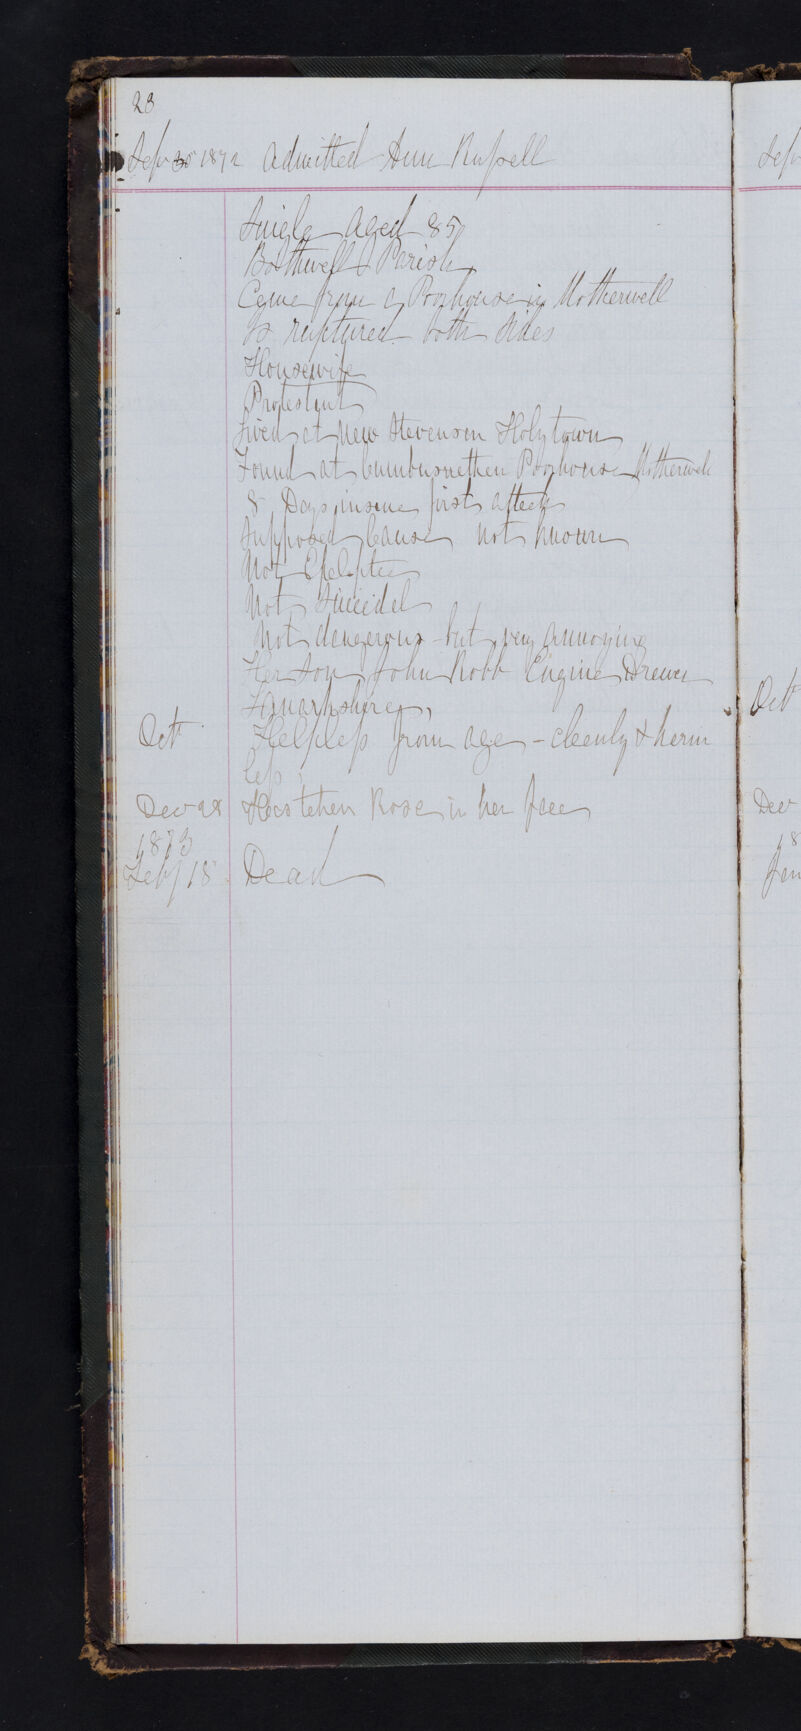 23
Sep 25 1872 Admitted Ann Russell
Single Aged 85
Bothwell Parish
Came from a Poorhouse in Motherwell
Is ruptured both sides
Housewife
Protestant
Lived at New Stevenson Holytown
Found at Poorhouse Motherwell
8 Days insane first attack
Supposed Cause not known
Not Epeleptic
Not Suicidal
Not dangerous but very annoying
Her Son John Robb Engine Drewer
Lanarkshire
Oct Helpless from age - cleanly & harm
less
Dec 28 Has taken Rose in her face
1873
Feby 18 Dead
Sep
Oct
Dec
18
Jan